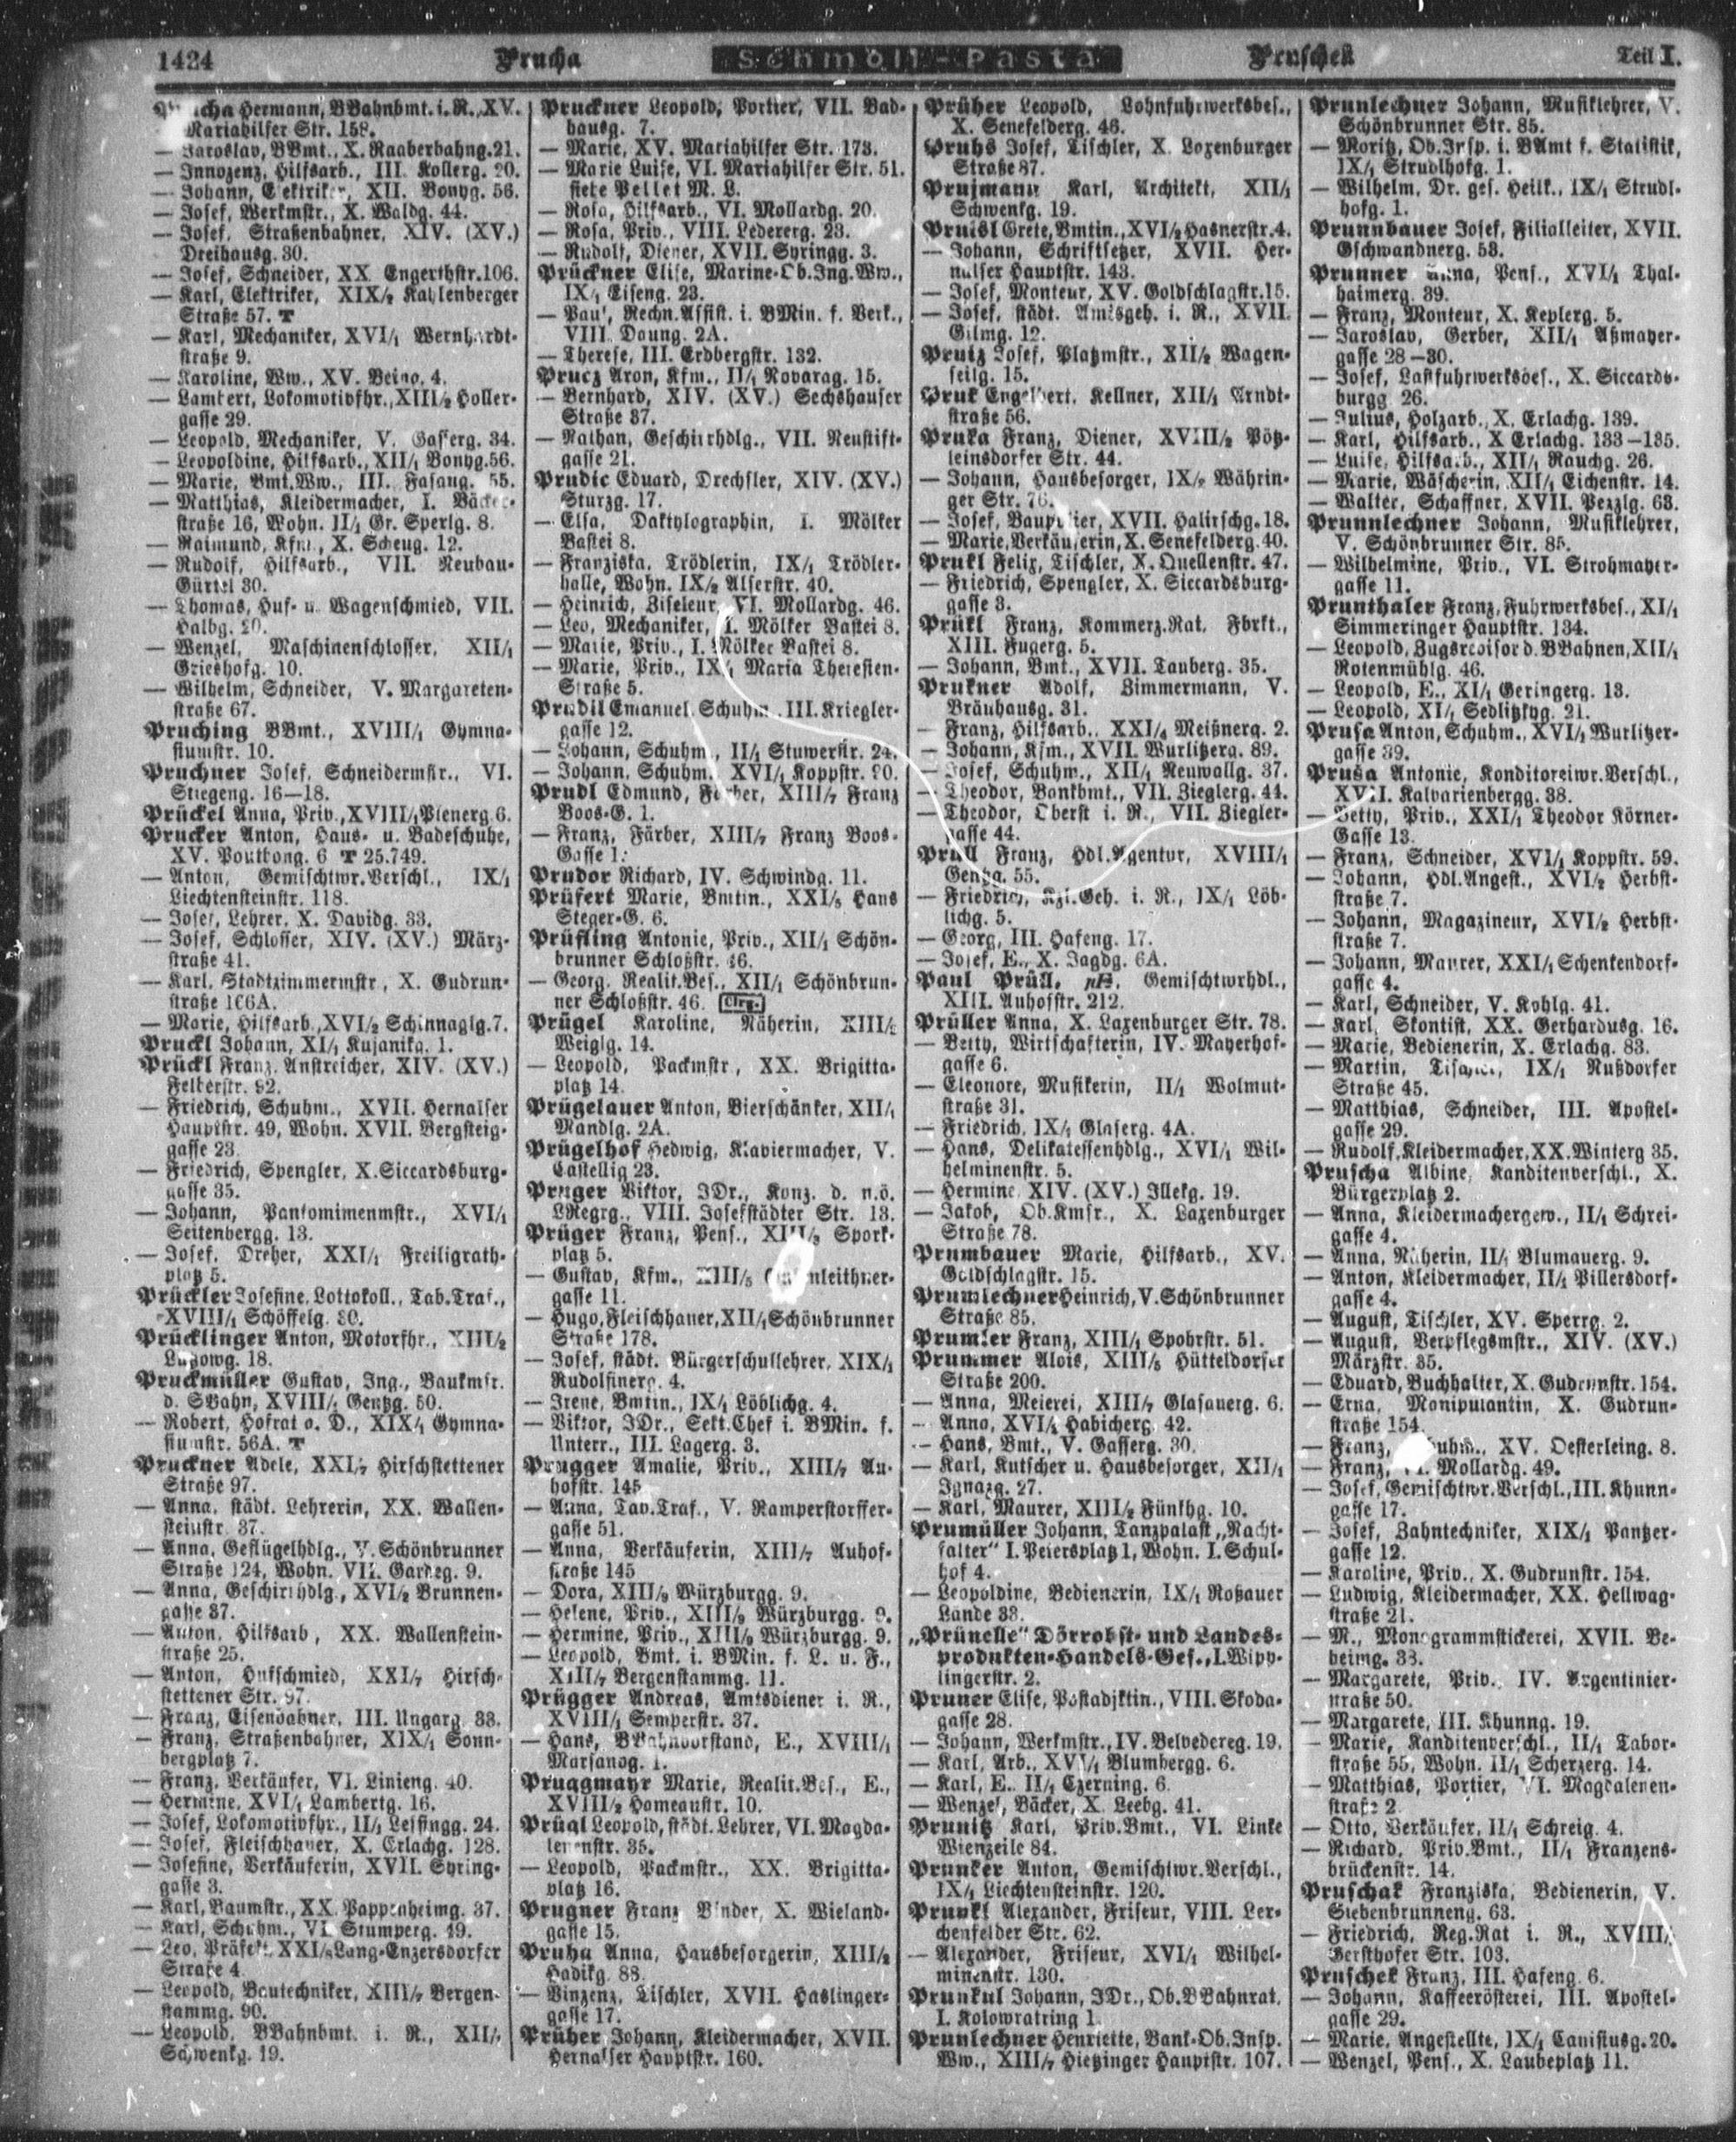 1424 Prucha Schmoll-Pasta Pruschek Teil I.
Hermann, BBahnbmt. i. R., XV.
Mariahilfer Str. 158.
— Jaroslav, BBmt., X. Raaberbahng. 21.
— Innozenz, Hilfsarb., III. Kollerg. 20.
— Johann, Elektriker, XII. Bonyg. 56.
— Josef, Werkmstr., X. Waldg. 44.
— Josef, Straßenbahner, XIV. (XV.)
Dreihausg. 30.
— Josef, Schneider, XX. Engerthstr. 106.
— Karl, Elektriker, XIX/2 Kahlenberger
Straße 57. T
— Karl, Mechaniker, XVI/1 Wernhardt-
straße 9.
— Karoline, Ww., XV. 4.
— Lambert, Lokomotivfhr., XIII/2 Holler-
gasse 29.
— Leopold, Mechaniker, V. Gasserg. 34.
— Leopoldine, Hilfsarb., XII/1 Bonyg. 56.
— Marie, Bmt.Ww., III. Fasang. 55.
— Matthias, Kleidermacher, I. Bäcker-
straße 16, Wohn. II/1 Gr. Sperlg. 8.
— Raimund, Kfm., X. Scheug. 12.
— Rudolf, Hilfsarb., VII. Neubau-
Gürtel 30.
— Thomas, Huf- u. Wagenschmied, VII.
Halbg. 20.
— Wenzel, Maschinenschlosser, XII/1
Grieshofg. 10.
— Wilhelm, Schneider, V. Margareten-
straße 67.
Pruching BBmt., XVIII/1 Gymna-
siumstr. 10.
Pruchner Josef, Schneidermstr., VI.
Stiegeng. 16—18.
Prückel Anna, Priv., XVIII/1 Plenerg. 6.
Prucker Anton, Haus- u. Badeschuhe,
XV. Pouthong. 6 T 25.749.
— Anton, Gemischtwr.Verschl., IX/1
Liechtensteinstr. 118.
— Josef, Lehrer, X. Davidg. 33.
— Josef, Schlosser, XIV. (XV.) März-
straße 41.
— Karl, Stadtzimmermstr., X. Gudrun-
straße 106A.
— Marie, Hilfsarb., XVI/2 Schinnaglg. 7.
Pruckl Johann, XI/1 Kujanikg. 1.
Prückl Franz, Anstreicher, XIV. (XV.)
Felberstr. 92.
— Friedrich, Schuhm., XVII. Hernalser
Hauptstr. 49, Wohn. XVII. Bergsteig-
gasse 23.
— Friedrich, Spengler, X. Siccardsburg-
gasse 35.
— Johann, Pantomimenmstr., XVI/1
Seitenbergg. 13.
— Josef, Dreher, XXI/1 Freiligrath-
platz 5.
Prückler Josefine, Lottokoll., Tab.Traf.,
XVIII/1 Schöffelg. 30.
Prücklinger Anton, Motorfhr., XIII/2
18.
Pruckmüller Gustav, Ing., Baukmsr.
d. SBahn, XVIII/1 Gentzg. 50.
— Robert, Hofrat a. D., XIX/1 Gymna-
siumstr. 56A. T
Pruckner Adele, XXI/7 Hirschstettener
Straße 97.
— Anna, städt. Lehrerin, XX. Wallen-
steinstr. 37.
— Anna, Geflügelhdlg., V. Schönbrunner
Straße 124, Wohn. VII. Gardeg. 9.
— Anna, Geschirrhdlg., XVI/2 Brunnen-
gasse 37.
— Anton, Hilfsarb., XX. Wallenstein-
straße 25.
— Anton, Hufschmied, XXI/7 Hirsch-
stettener Str. 97.
— Franz, Eisenbahner, III. Ungarg. 38.
— Franz, Straßenbahner, XIX/1 Sonn-
bergplatz 7.
— Franz, Verkäufer, VI. Linieng. 40.
— Hermine, XVI/1 Lambertg. 16.
— Josef, Lokomotivfhr., II/1 Lessingg. 24.
— Josef, Fleischhauer, X. Erlachg. 128.
— Josefine, Verkäuferin, XVII. Syring-
gasse 3.
— Karl, Baumstr., XX. Pappenheimg. 37.
— Karl, Schuhm., VI. Stumperg. 49.
— Leo, Präfekt, XXI/8 Lang-Enzersdorfer
Straße 4.
— Leopold, Bautechniker, XIII/7 Bergen-
stammg. 90.
— Leopold, BBahnbmt. i. R., XII/1
Schwenkg. 19.
Pruckner Leopold, Portier, VII. Bad-
hausg. 7.
— Marie, XV. Mariahilfer Str. 173.
— Marie Luise, VI. Mariahilfer Str. 51.
siehe Pellet M. L.
— Rosa, Hilfsarb., VI. Mollardg. 20.
— Rosa, Priv., VIII. Ledererg. 23.
— Rudolf, Diener, XVII. Syringg. 3.
Prückner Elise, Marine-Ob.Ing.Ww.,
IX/1 Eiseng. 23.
— Paul, Rechn.Assist. i. BMin. f. Verk.,
VIII. Daung. 2A.
— Therese, III. Erdbergstr. 132.
Prucz Aron, Kfm., II/1 Novarag. 15.
— Bernhard, XIV. (XV.) Sechshauser
Straße 37.
— Nathan, Geschirrhdlg., VII. Neustift-
gasse 21.
Prudic Eduard, Drechsler, XIV. (XV.)
Sturzg. 17.
— Elsa, Daktylographin, I. Mölker
Bastei 8.
— Franziska, Trödlerin, IX/1 Trödler-
halle, Wohn. IX/2 Alserstr. 40.
— Heinrich, Ziseleur, VI. Mollardg. 46.
— Leo, Mechaniker, I. Mölker Bastei 8.
— Marie, Priv., I. Mölker Bastei 8.
— Marie, Priv., IX/1 Maria Theresien-
Straße 5.
Prudil Emanuel, Schuhm., III. Kriegler-
gasse 12.
— Johann, Schuhm., II/1 Stuwerstr. 24.
— Johann, Schuhm., XVI/1 Koppstr. 90.
Prudl Edmund, Färber, XIII/7 Franz
Boos-G. 1.
— Franz, Färber, XIII/7 Franz Boos-
Gasse 1.
Prudor Richard, IV. Schwindg. 11.
Prüfert Marie, Bmtin., XXI/5 Hans
Steger-G. 6.
Prüfling Antonie, Priv., XII/1 Schön-
brunner Schloßstr. 46.
— Georg, Realit.Bes., XII/1 Schönbrun-
ner Schloßstr. 46.
Prügel Karoline, Näherin, XIII/2
Weiglg. 14.
— Leopold, Packmstr., XX. Brigitta-
platz 14.
Prügelauer Anton, Bierschänker, XII/1
Mandlg. 2A.
Prügelhof Hedwig, Klaviermacher, V.
Castellig. 23.
Pruger Viktor, JDr., Konz. d. n.ö.
LRegrg., VIII. Josefstädter Str. 13.
Prüger Franz, Pens., Spork-
platz 5.
— Gustav, Kfm., XIII/5
gasse 11.
— Hugo, Fleischhauer, XII/1 Schönbrunner
Straße 178.
— Josef, städt. Bürgerschullehrer, XIX/1
Rudolfinerg. 4.
— Irene, Bmtin., IX/1 Löblichg. 4.
— Viktor, JDr., Sekt.Chef i. BMin. f.
Unterr., III. Lagerg. 3.
Prugger Amalie, Priv., XIII/7 Au-
hofstr. 145.
— Anna, Tab.Traf., V. Ramperstorffer-
gasse 51.
— Anna, Verkäuferin, XIII/7 Auhof-
straße 145.
— Dora, XIII/9 Würzburgg. 9.
— Helene, Priv., XIII/9 Würzburgg. 9.
— Hermine, Priv., XIII/9 Würzburgg. 9.
— Leopold, Bmt. i. BMin. f. L. u. F.,
XIII/7 Bergenstammg. 11.
Prügger Andreas, Amtsdiener i. R.,
XVIII/1 Semperstr. 37.
— Hans, BBahnvorstand, E., XVIII/1
Marsanog. 1.
Pruggmayr Marie, Realit.Bes., E.,
XVIII/2 Hameaustr. 10.
Prügl Leopold, städt. Lehrer, VI. Magda-
lenenstr. 35.
— Leopold, Packmstr., XX. Brigitta-
platz 16.
Prugner Franz, Binder, X. Wieland-
gasse 15.
Pruha Anna, Hausbesorgerin, XIII/2
Hadikg. 88.
— Vinzenz, Tischler, XVII. Haslinger-
gasse 17.
Prüher Johann, Kleidermacher, XVII.
Hernalser Hauptstr. 160.
Prüher Leopold, Lohnfuhrwerksbes.,
X. Senefelderg. 46.
Pruhs Josef, Tischler, X. Laxenburger
Straße 87.
Prujmann Karl, Architekt, XII/1
Schwenkg. 19.
Pruisl Grete, Bmtin., XVI/2 Hasnerstr. 4.
— Johann, Schriftsetzer, XVII. Her-
nalser Hauptstr. 143.
— Josef, Monteur, XV. Goldschlagstr. 15.
— Josef, städt. Amtsgeh. i. R., XVII.
Gilmg. 12.
Josef, Platzmstr., XII/2 Wagen-
seilg. 15.
Pruk Engelbert, Kellner, XII/1 Arndt-
straße 56.
Pruka Franz, Diener, XVIII/2 Pötz-
leinsdorfer Str. 44.
— Johann, Hausbesorger, IX/2 Währin-
ger Str. 76.
— Josef, XVII. Halirschg. 18.
— Marie, Verkäuferin, X. Senefelderg. 40.
Prukl Felix, Tischler, X. Quellenstr. 47.
— Friedrich, Spengler, X. Siccardsburg-
gasse 3.
Prükl Franz, Kommerz.Rat, Fbrkt.,
XIII. Fugerg. 5.
— Johann, Bmt., XVII. Tauberg. 35.
Prukner Adolf, Zimmermann, V.
Bräuhausg. 31.
— Franz, Hilfsarb., XXI/4 Meißnerg. 2.
— Johann, Kfm., XVII. Wurlitzerg. 89.
— Josef, Schuhm., XII/1 Neuwallg. 37.
— Theodor, Bankbmt., VII. Zieglerg. 44.
— Theodor, Oberst i. R., VII. Ziegler-
gasse 44.
Prull Franz, Hdl.Agentur, XVIII/1
Gentzg. 55.
— Friedrich, Kzl.Geh. i. R., IX/1 Löb-
lichg. 5.
— Georg, III. Hafeng. 17.
— Josef, E., X. Jagdg. 6A.
Paul Prüll, Gemischtwrhdl.,
XIII. Auhofstr. 212.
Prüller Anna, X. Laxenburger Str. 78.
— Betty, Wirtschafterin, IV. Mayerhof-
gasse 6.
— Eleonore, Musikerin, II/1 Wolmut-
straße 31.
— Friedrich, IX/1 Glaserg. 4A.
— Hans, Delikatessenhdlg., XVI/1 Wil-
helminenstr. 5.
— Hermine, XIV. (XV.) Illekg. 19.
— Jakob, Ob.Kmsr., X. Laxenburger
Straße 78.
Prumbauer Marie, Hilfsarb., XV.
Goldschlagstr. 15.
Prumlechner Heinrich, V. Schönbrunner
Straße 85.
Prumler Franz, XIII/1 Spohrstr. 51.
Prummer Alois, XIII/5 Hütteldorfer
Straße 200.
— Anna, Meierei, XIII/7 Glasauerg. 6.
— Anna, XVI/1 Habicherg. 42.
— Hans, Bmt., V. Gasserg. 30.
— Karl, Kutscher u. Hausbesorger, XII/1
Ignazg. 27.
— Karl, Maurer, XIII/2 Fünkhg. 10.
Prumüller Johann, Tanzpalast „Nacht-
falter“ I. Petersplatz 1, Wohn. I. Schul-
hof 4.
— Leopoldine, Bedienerin, IX/1 Roßauer
Lände 33.
„Prünelle“ Dörrobst- und Landes-
produkten-Handels-Ges., I. Wipp-
lingerstr. 2.
Pruner Elise, Postadjktin., VIII. Skoda-
gasse 28.
— Johann, Werkmstr., IV. Belvedereg. 19.
— Karl, Arb., XVI/1 Blumbergg. 6.
— Karl, E., II/1 Czerning. 6.
— Wenzel, Bäcker, X. Leebg. 41.
Prunitz Karl, Priv.Bmt., VI. Linke
Wienzeile 84.
Prunker Anton, Gemischtwr.Verschl.,
IX/1 Liechtensteinstr. 120.
Prunkl Alexander, Friseur, VIII. Ler-
chenfelder Str. 62.
— Alexander, Friseur, XVI/1 Wilhel-
minenstr. 130.
Prunkul Johann, JDr., Ob.BBahnrat,
I. Kolowratring 1.
Prunlechner Henriette, Bank-Ob.Insp.
Ww., XIII/7 Hietzinger Hauptstr. 107.
Prunlechner Johann, Musiklehrer, V.
Schönbrunner Str. 85.
— Moritz, Ob.Insp. i. BAmt f. Statistik,
IX/1 Strudlhofg. 1.
— Wilhelm, Dr. ges. Heilk., IX/1 Strudl-
hofg. 1.
Prunnbauer Josef, Filialleiter, XVII.
Gschwandnerg. 53.
Prunner Anna, Pens., XVI/1 Thal-
haimerg. 39.
— Franz, Monteur, X. Keplerg. 5.
— Jaroslav, Gerber, XII/1 Aßmayer-
gasse 28—30.
— Josef, Lastfuhrwerksbes., X. Siccards-
burgg. 26.
— Julius, Holzarb., X. Erlachg. 139.
— Karl, Hilfsarb., X. Erlachg. 133—135.
— Luise, Hilfsarb., XII/1 Rauchg. 26.
— Marie, Wäscherin, XII/1 Eichenstr. 14.
— Walter, Schaffner, XVII. Pezzlg. 63.
Prunnlechner Johann, Musiklehrer,
V. Schönbrunner Str. 85.
— Wilhelmine, Priv., VI. Strohmayer-
gasse 11.
Prunthaler Franz, Fuhrwerksbes., XI/1
Simmeringer Hauptstr. 134.
— Leopold, Zugsrevisor d. BBahnen, XII/1
Rotenmühlg. 46.
— Leopold, E., XI/1 Geringerg. 13.
— Leopold, XI/1 Sedlitzkyg. 21.
Prusa Anton, Schuhm., XVI/1 Wurlitzer-
gasse 39.
Prusa Antonie, Konditoreiwr.Verschl.,
XVII. Kalvarienbergg. 38.
— Betty, Priv., XXI/1 Theodor Körner-
Gasse 13.
— Franz, Schneider, XVI/1 Koppstr. 59.
— Johann, Hdl.Angest., XVI/2 Herbst-
straße 7.
— Johann, Magazineur, XVI/2 Herbst-
straße 7.
— Johann, Maurer, XXI/1 Schenkendorf-
gasse 4.
— Karl, Schneider, V. Kohlg. 41.
— Karl, Skontist, XX. Gerhardusg. 16.
— Marie, Bedienerin, X. Erlachg. 83.
— Martin, Tischler, IX/1 Nußdorfer
Straße 45.
— Matthias, Schneider, III. Apostel-
gasse 29.
— Rudolf, Kleidermacher, XX. Winterg. 35.
Pruscha Albine, Kanditenverschl., X.
Bürgerplatz 2.
— Anna, Kleidermachergew., II/1 Schrei-
gasse 4.
— Anna, Näherin, II/1 Blumauerg. 9.
— Anton, Kleidermacher, II/1 Pillersdorf-
gasse 4.
— August, Tischler, XV. Sperrg. 2.
— August, Verpflegsmstr., XIV. (XV.)
Märzstr. 35.
— Eduard, Buchhalter, X. Gudrunstr. 154.
— Erna, Manipulantin, X. Gudrun-
straße 154.
— Franz, Schuhm., XV. Oesterleing. 8.
— Franz, VI. Mollardg. 49.
— Josef, Gemischtwr.Verschl., III. Khunn-
gasse 17.
— Josef, Zahntechniker, XIX/1 Pantzer-
gasse 12.
— Karoline, Priv., X. Gudrunstr. 154.
— Ludwig, Kleidermacher, XX. Hellwag-
straße 21.
— M., Monogrammstickerei, XVII. Be-
heimg. 38.
— Margarete, Priv., IV. Argentinier-
straße 50.
— Margarete, III. Khunng. 19.
— Marie, Kanditenverschl., II/1 Tabor-
straße 55, Wohn. II/1 Scherzerg. 14.
— Matthias, Portier, VI. Magdalenen-
straße 2.
— Otto, Verkäufer, II/1 Schreig. 4.
— Richard, Priv.Bmt., II/1 Franzens-
brückenstr. 14.
Pruschak Franziska, Bedienerin, V.
Siebenbrunneng. 63.
— Friedrich, Reg.Rat i. R., XVIII/1
Gersthofer Str. 103.
Pruschek Franz, III. Hafeng. 6.
— Johann, Kaffeerösterei, III. Apostel-
gasse 29.
— Marie, Angestellte, IX/1 Canisiusg. 20.
— Wenzel, Pens., X. Laubeplatz 11.